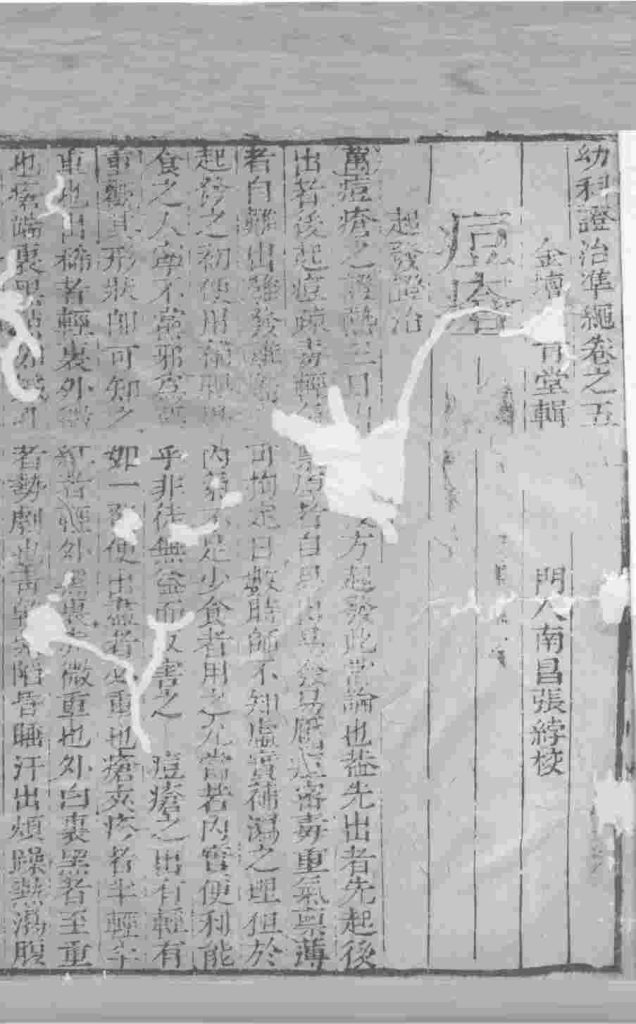 幼科證治準繩卷之五
金壇 肯堂輯 門人南昌張綍校
痘瘡
起發證治
萬痘瘡之證熱三日 方起發此常論也蓋先出者先起後
出者後起痘疏毒輕 氣禀厚者自易出易發易靨痘密毒重氣禀薄
者自難出難發難 可拘定日數時師不知虛實補瀉之理但於
起發之初便用 內氣不足少食者用之尤當若內實便利能
食之人 不 邪 乎非徒無益而反害之 痘瘡之出有輕有
重觀其形狀即可知之 如一 便出盡者必重也瘡夾疹者半輕半
重也出稀者輕裏外 紅者輕外黑裏赤微重也外白裏黑者至重
也瘡端裏黑點 者勢劇也青 陷昏睡汗出煩躁熱渴腹